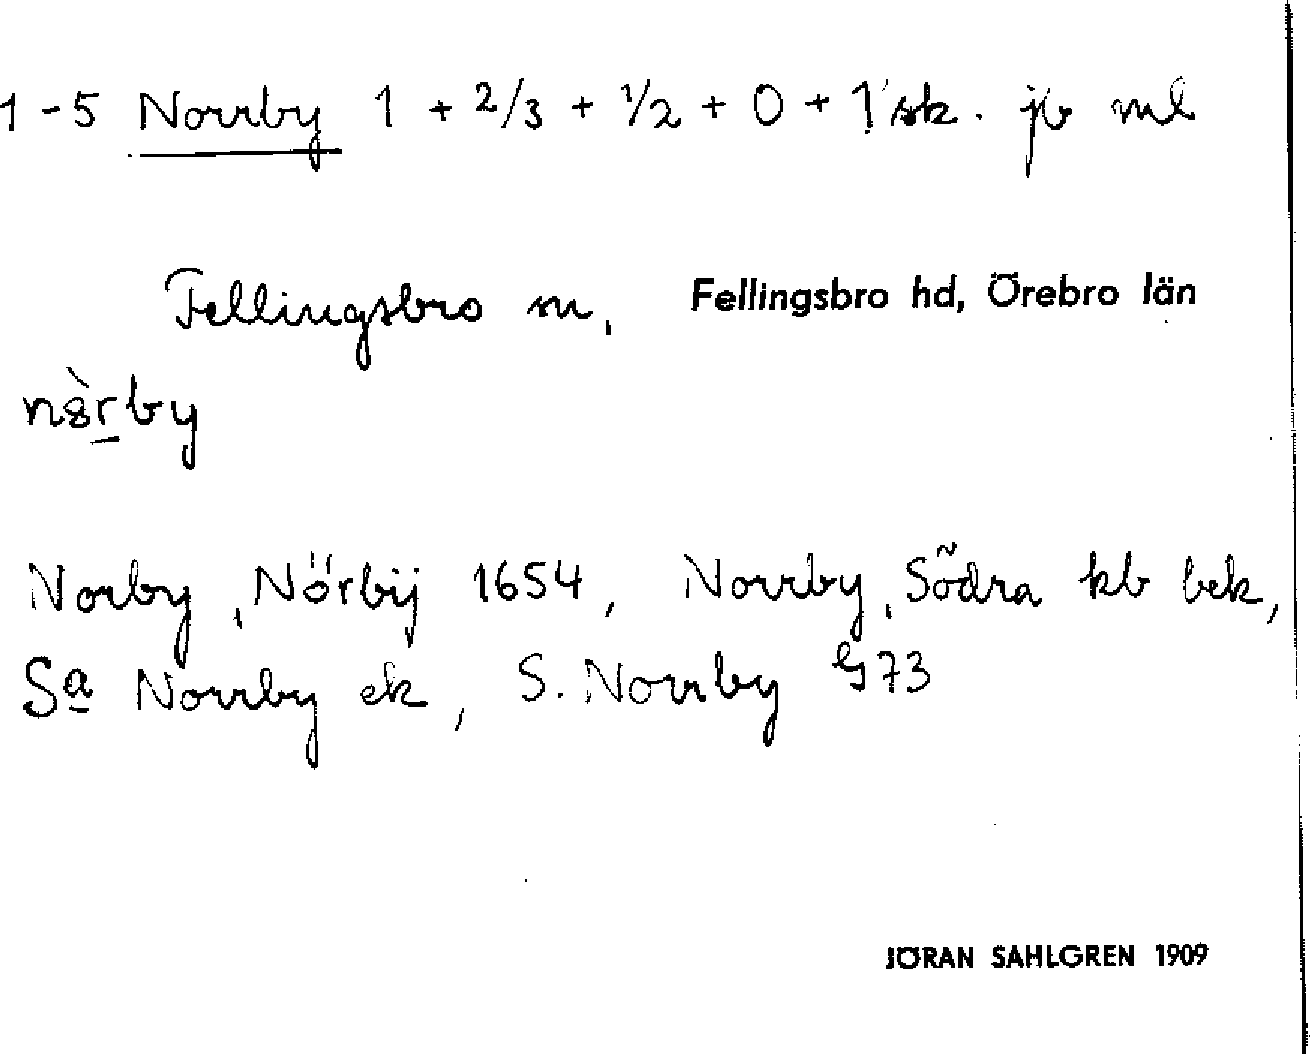 1-5 Norrby 1 + 2/3 + 1/2 + 0 + 1 sk. jb ml
Fellingsbro sn, Fellingsbro hd, Örebro län
nò̀rby
Norby, Nörbÿ 1654, Norrby, Södra kb bek,
Sa Norrby ek, S. Norrby G73
JÖRAN SAHLGREN 1909